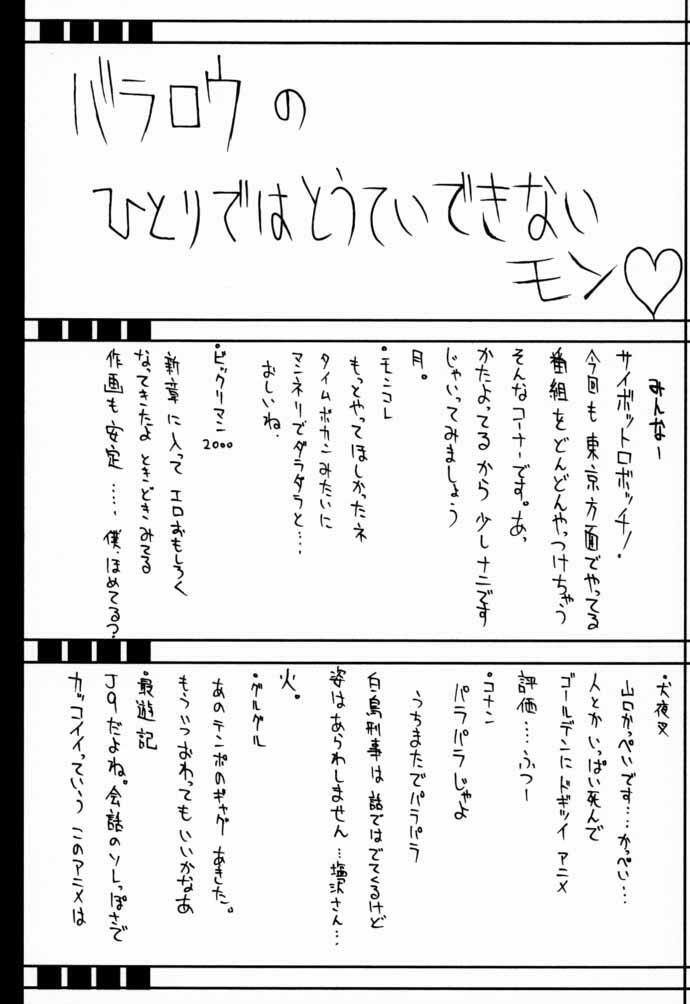 バラロウの
ひとりではとうていできない
モン♡
みんなー
サイボットロボッチ！
今回も東京方面でやってる
番組をどんどんやっつけちゃう
そんなコーナーです。あっ
かたよってるから少しナニです
じゃいってみましょう
月。
・モンコレ
もっとやってほしかったネ
タイムボカンみたいに
マンネリでダラダラと‥‥
おしいね.
・ビックリマン2000
新章に入って エロおもしろく
なってきたよ ときどきみてる
作画も安定 ……. 僕、ほめてる?
・犬夜叉
山口かっぺいです…‥かっぺい…
人とかいっぱい死んで
ゴールデンにドギツイアニメ
評価……ふつー
・コナン
パラパラじゃよ
うちまたでパラパラ
白鳥刑事は話ではでてくるけど
姿はあらわしません…塩沢さん…
火。
・グルグル
あのテンポのギャグ あきた。
もういつおわってもいいかなあ
・最遊記
J9だよね。会話のソレっぽさで
カッコイイっていう このアニメは